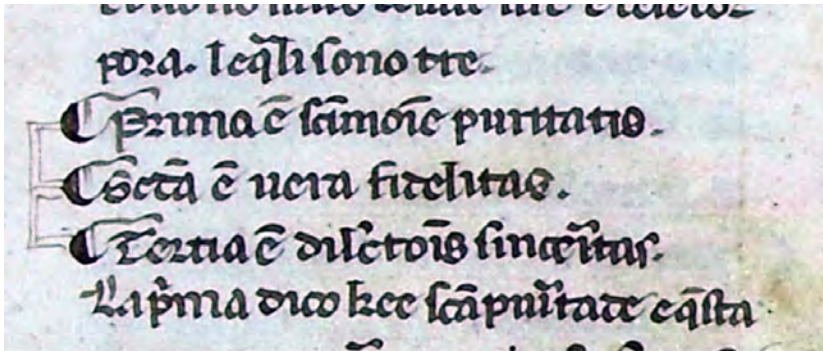 pora. Ieq̄li sono tre.
¶ Prima ē sc̄imoīe puritatis.
¶ Sc̄cda ē uera fidelitas.
¶ Tertia ē dilc̄toīs sincer̄itas.
La p̄ma dico kee sc̄a pur̄itade e q̄sta